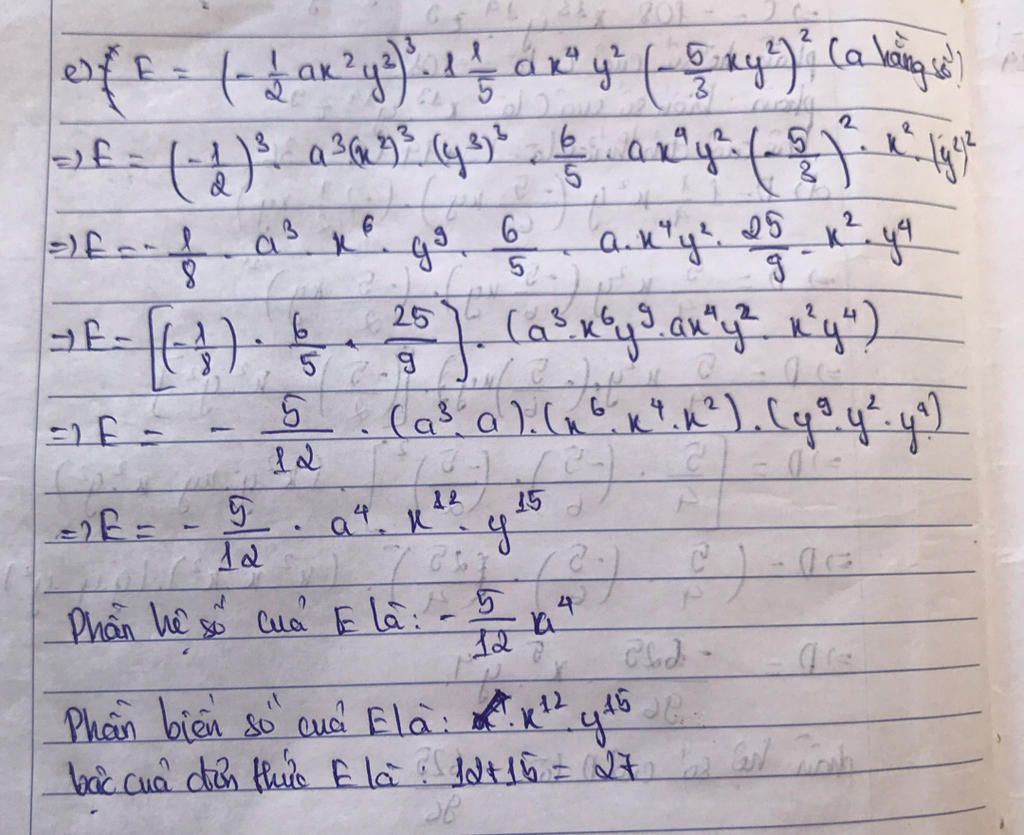 e) E = (-1/2 ax²y²)³ · 1 1/5 ax⁴y² (-5/3 xy²)² (a hằng số)
=> E = (-1/2)³ · a³(x²)³ (y³)³ · 6/5 · ax⁴y² · (-5/3)² · x² · (y²)²
=> E = -1/8 · a³ · x⁶ · y⁹ · 6/5 · a · x⁴y² · 25/9 · x² · y⁴
=> E = [(-1/8) · 6/5 · 25/9] · (a³ · x⁶y⁹ · ax⁴y² · x²y⁴)
=> E = - 5/12 · (a³ · a) · (x⁶ · x⁴ · x²) · (y⁹ · y² · y⁴)
=> E = - 5/12 · a⁴ · x¹² · y¹⁵
Phần hệ số cuả E là: - 5/12 a⁴
Phần biến số cuả E là: x¹² · y¹⁵
bậc cuả đơn thức E là: 12+15 = 27